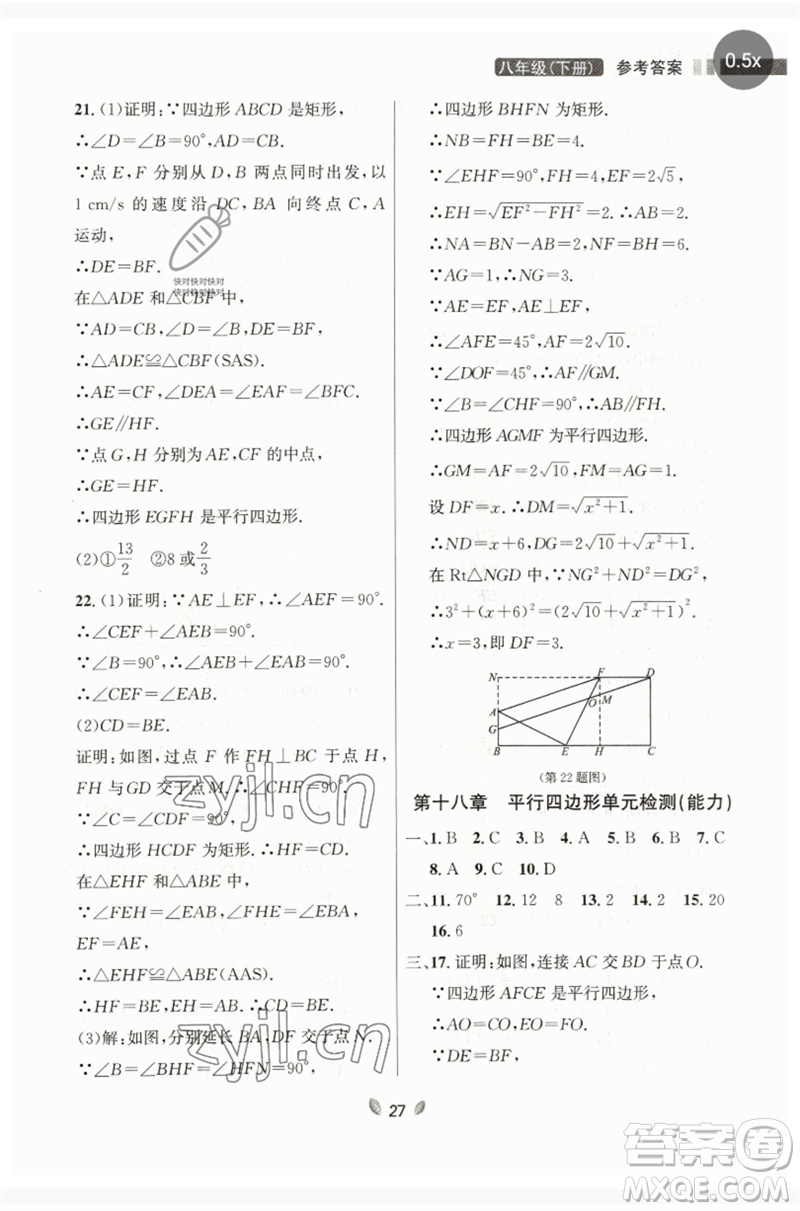 八年级(下册) 参考答案
0.5x
21. (1)证明:∵四边形 ABCD 是矩形,
∴∠D=∠B=90°,AD=CB.
∵点 E,F 分别从 D,B 两点同时出发,以
1 cm/s 的速度沿 DC,BA 向终点 C,A
运动,
∴DE=BF.
在△ADE 和△CBF 中,
∵AD=CB,∠D=∠B=90°,DE=BF,
∴△ADE≌△CBF(SAS).
∴AE=CF,∠DEA=∠EAF=∠BFC.
∴GE∥HF.
∵点 G,H 分别为 AE,CF 的中点,
∴GE=HF.
∴四边形 EGFH 是平行四边形.
(2)①13/2 ②8 或 2/3
22. (1)证明:∵AE⊥EF,∴∠AEF=90°.
∴∠CEF+∠AEB=90°.
∵∠B=90°,∴∠AEB+∠EAB=90°.
∴∠CEF=∠EAB.
(2)CD=BE.
证明:如图,过点 F 作 FH⊥BC 于点 H,
FH 与 GD 交于点 M,∴∠CHF=90°.
∵∠C=∠CDF=90°,
∴四边形 HCDF 为矩形.∴CD=HF.
在△EHF 和△ABE 中,
∵∠FEH=∠EAB,∠FHE=∠B=90°,
EF=AE,
∴△EHF≌△ABE(AAS).
∴HF=BE.∴CD=BE.
(3)解:如图,分别延长 BA,DF 交于点 N.
∵∠B=∠BHF=∠HFN=90°,
快对快对快对快对
快对快对快对快对
∴四边形 BHFN 为矩形.
∴NB=FH=BE=4.
∵∠EHF=90°,FH=4,EF=2√5,
∴EH=√(EF²-FH²)=2.∴BH=6.
∴NA=BN-AB=2,NF=BH=6.
∵AG=1,∴NG=3.
∵AE=EF,AE⊥EF,
∴∠AFE=45°,AF=2√10.
∵∠DOF=45°,∴AF∥GM.
∵∠B=∠CHF=90°,∴AB∥FH.
∴四边形 AGMF 为平行四边形.
∴GM=AF=2√10,FM=AG=1.
设 DF=x.∴DM=√(x²+1).
∴ND=x+6,DG=2√10+√(x²+1).
在 Rt△NGD 中,∵NG²+ND²=DG²,
∴3²+(x+6)²=(2√10+√(x²+1))².
∴x=3,即 DF=3.
N F D
A O M
G
B E H C
(第 22 题图)
第十八章 平行四边形单元检测(能力)
一、1. B 2. C 3. B 4. A 5. B 6. B 7. C
8. A 9. C 10. D
二、11. 70° 12. 12 8 13. 2 14. 2 15. 20
16. 6
三、17. 证明:如图,连接 AC 交 BD 于点 O.
∵四边形 AFCE 是平行四边形,
∴AO=CO,EO=FO.
∵DE=BF,
zyjl.cn
zyjl.cn
27
答案圈
MXQE.COM